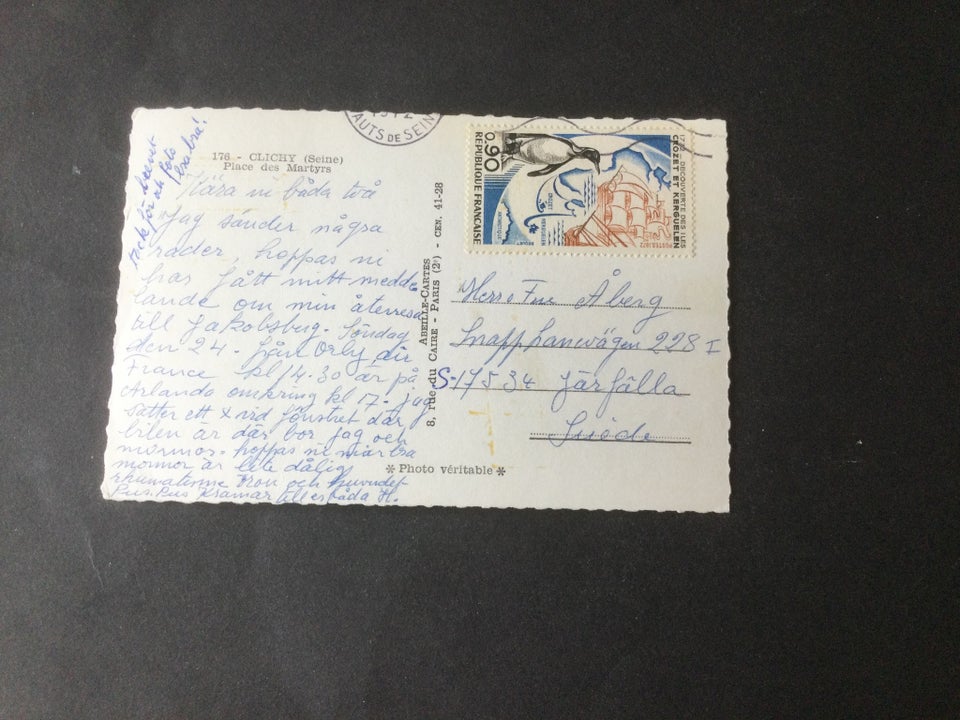 176 - CLICHY (Seine)
Place des Martyrs
Kära ni båda två
Jag sänder några
rader, hoppas ni
has fått mitt medde
lande om min återresa
till Jakobsberg. Söndag
den 24. från Orly Air
France kl 14.30 är på
Arlanda omkring kl 17. jag
sätter ett X vid fönstret där
bilen är där bor jag och
mormor. hoppas ni mår bra
mormor är lite dålig
rheumatisme Tron och huvudet
Puss Puss Kramar till er båda H.
Tack för brevet
och foto
bra bra!
ABEILLE-CARTES
8, rue du CAIRE - PARIS (2e) - CEN. 41-28
* Photo véritable *
1972
HAUTS DE SEINE
0,90
REPUBLIQUE FRANÇAISE
1772 DECOUVERTE DES ILES
CROZET ET KERGUELEN
POSTES 1972
CROZET
KERGUELEN
ANTARCTIQUE
Herr o Fru Åberg
Snapphanevägen 228 I
S-175 34 Järfälla
Suède